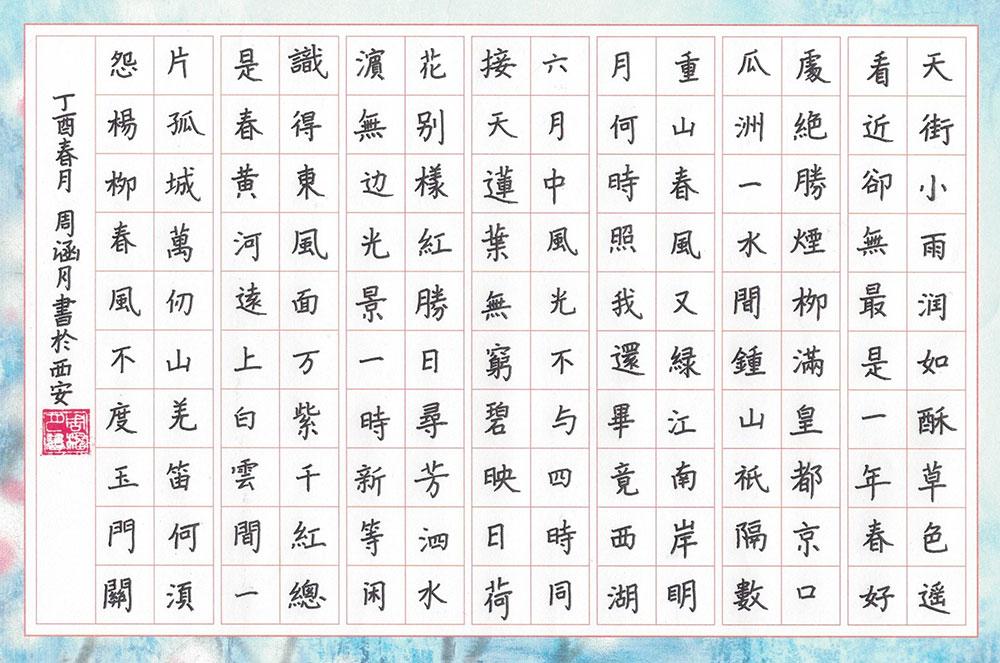 天街小雨润如酥草色遥
看近卻無最是一年春好
處絶勝煙柳滿皇都京口
瓜洲一水間鍾山祇隔數
重山春風又綠江南岸明
月何時照我還畢竟西湖
六月中風光不与四時同
接天蓮葉無窮碧映日荷
花别樣紅勝日尋芳泗水
濱無边光景一時新等闲
識得東風面万紫千紅總
是春黄河遠上白雲間一
片孤城萬仞山羌笛何須
怨楊柳春風不度玉門關
丁酉春月 周涵月書於西安